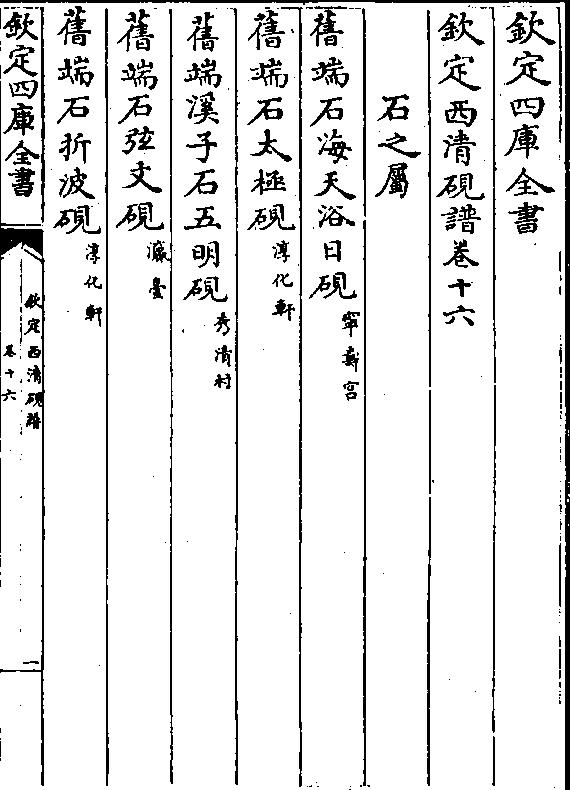 欽定四庫全書
欽定西清硯譜卷十六
石之屬
舊端石海天浴日硯 寧壽宮
舊端石太極硯 淳化軒
舊端溪子石五明硯 秀清村
舊端石弦文硯 瀛臺
舊端石折波硯 淳化軒
欽定四庫全書
欽定西清硯譜
卷十六
一